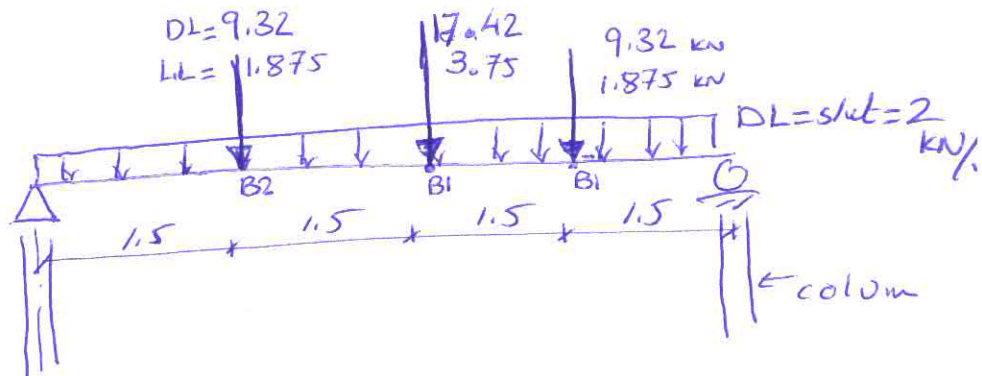 DL=9.32
LL=1.875
17.42
3.75
9.32 KN
1.875 KN
DL=slut=2
KN/.
B2
B1
B1
1.5
1.5
1.5
1.5
colum